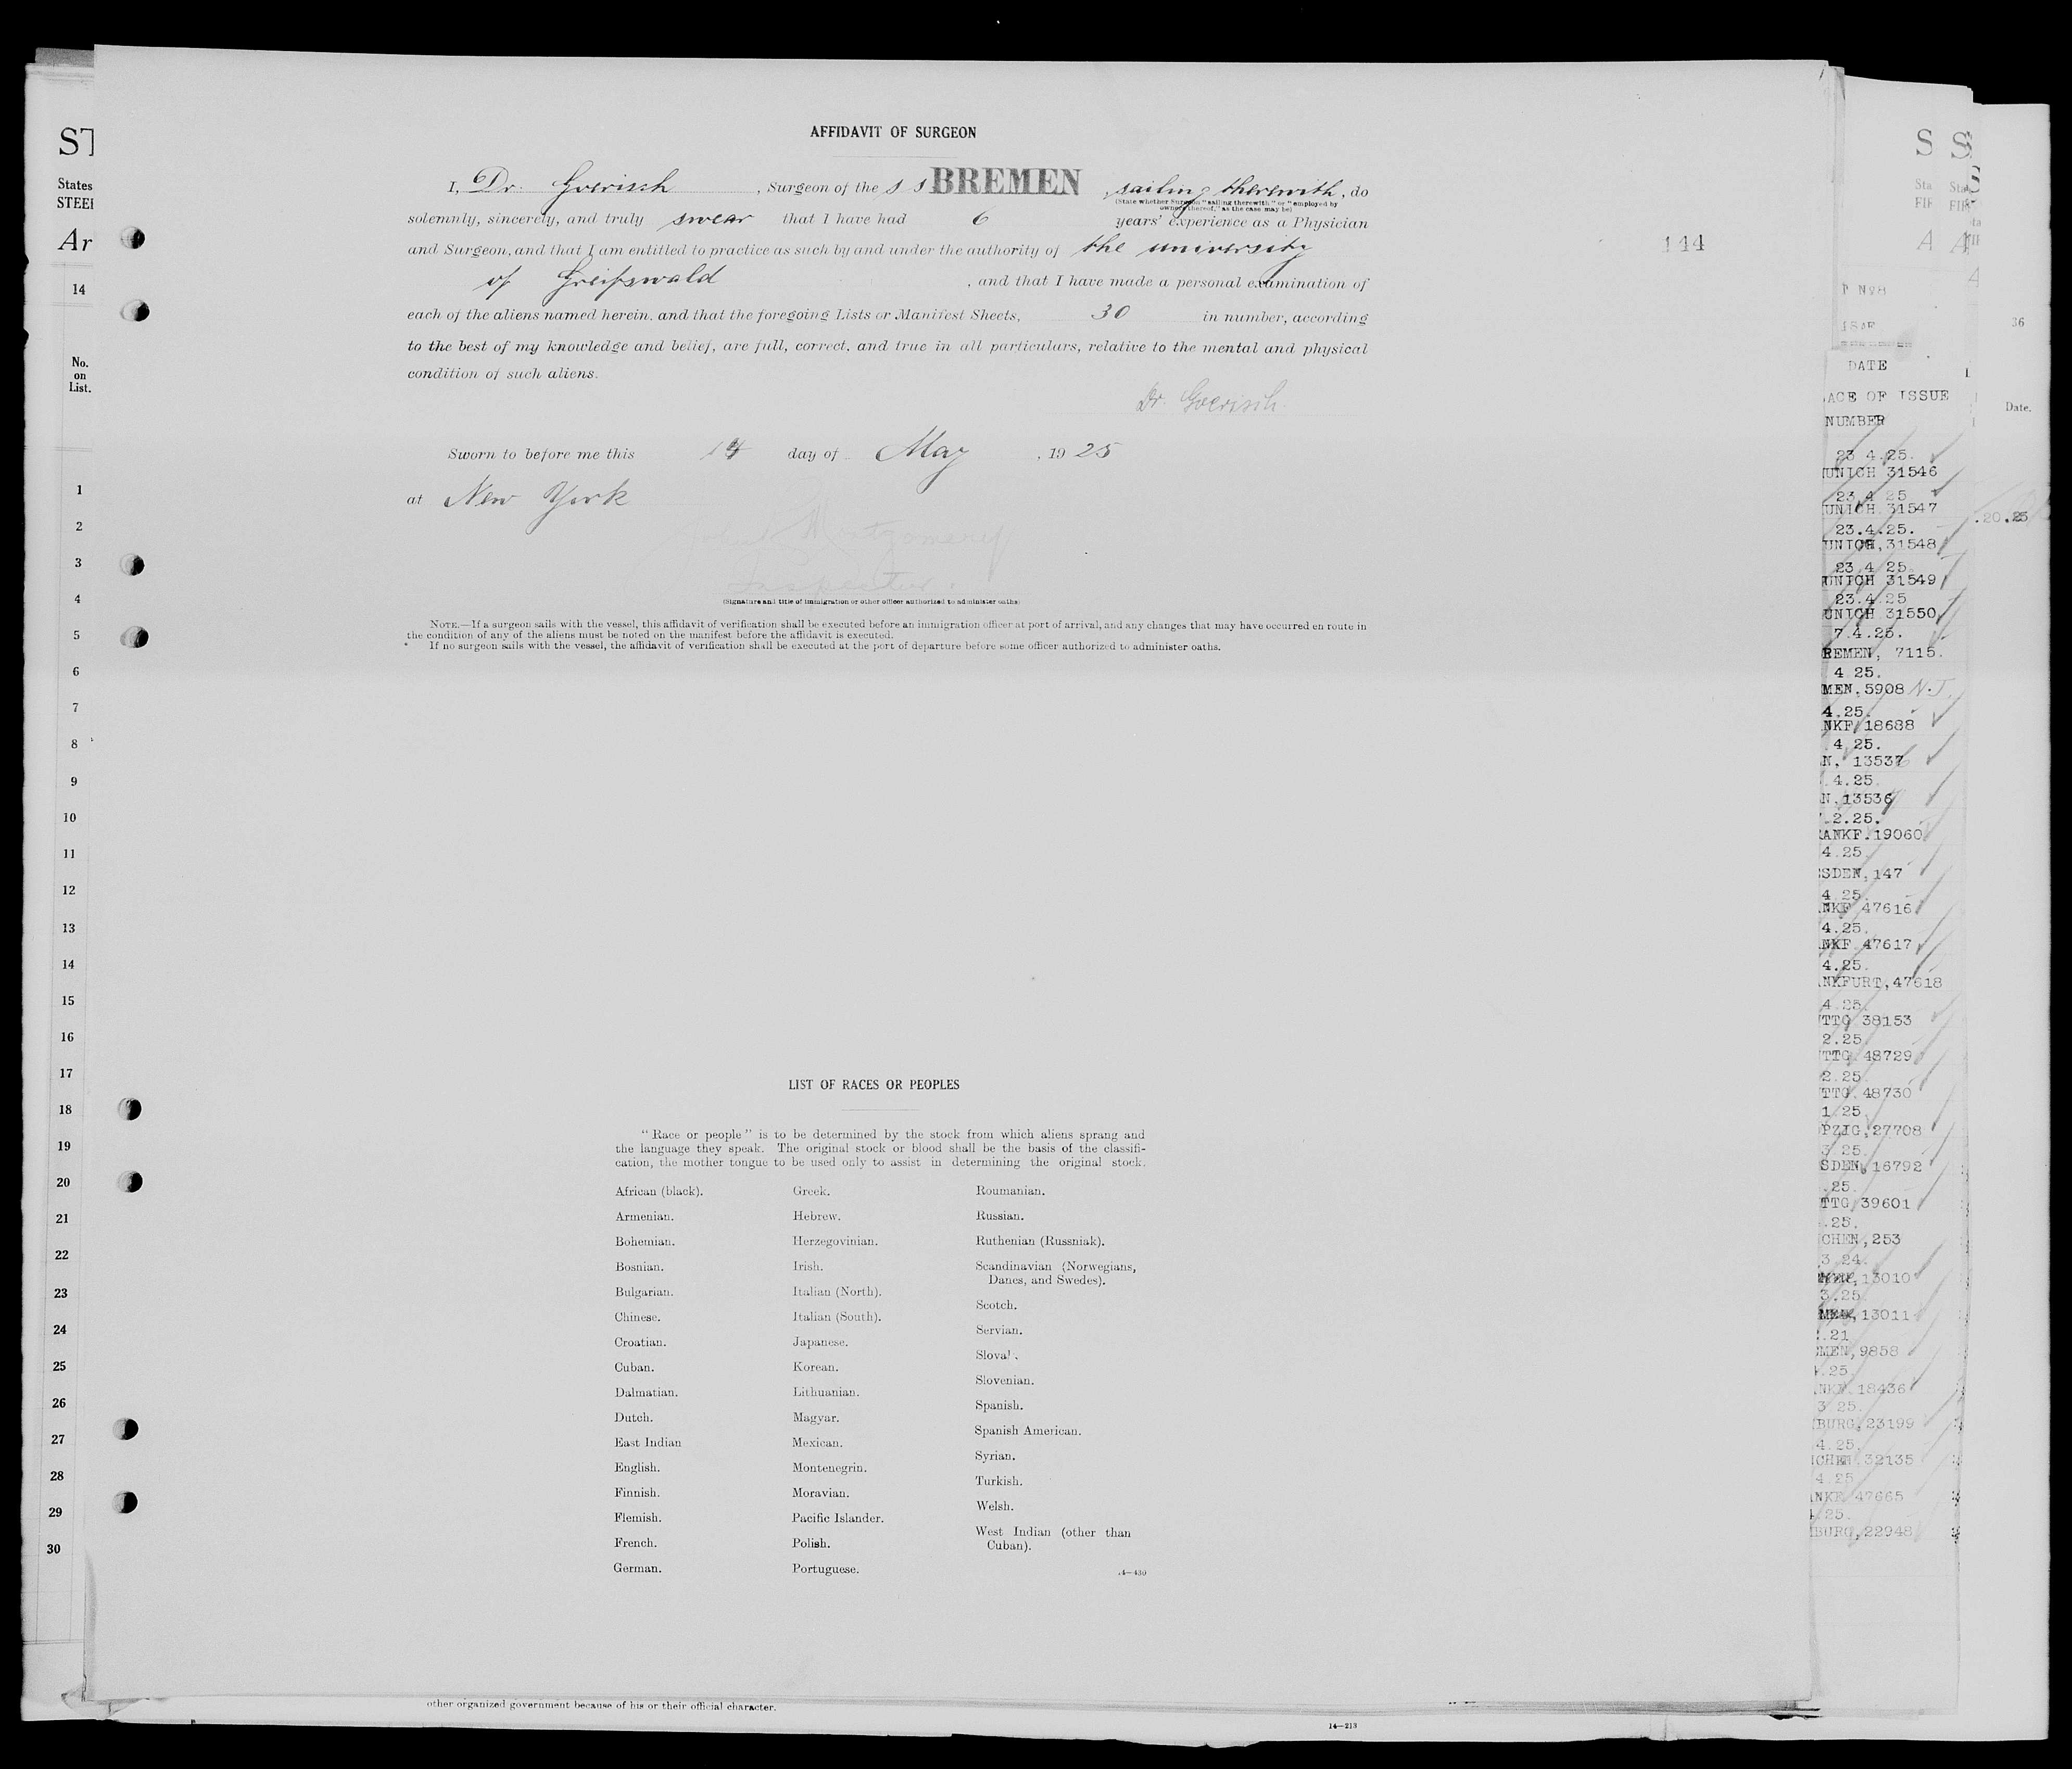 AFFIDAVIT OF SURGEON
I, Dr. Goerisch, Surgeon of the s s BREMEN, sailing therewith, do
(State whether Surgeon "sailing therewith" or "employed by
owners thereof," as the case may be)
solemnly, sincerely, and truly swear that I have had 6 years' experience as a Physician
and Surgeon, and that I am entitled to practice as such by and under the authority of the university
of Greifswald, and that I have made a personal examination of
each of the aliens named herein, and that the foregoing Lists or Manifest Sheets, 30 in number, according
to the best of my knowledge and belief, are full, correct, and true in all particulars, relative to the mental and physical
condition of such aliens.
Dr. Goerisch.
Sworn to before me this 14 day of May, 1925
at New York
Montgomery
Inspector.
(Signature and title of immigration or other officer authorized to administer oaths)
NOTE.—If a surgeon sails with the vessel, this affidavit of verification shall be executed before an immigration officer at port of arrival, and any changes that may have occurred en route in
the condition of any of the aliens must be noted on the manifest before the affidavit is executed.
If no surgeon sails with the vessel, the affidavit of verification shall be executed at the port of departure before some officer authorized to administer oaths.
144
LIST OF RACES OR PEOPLES
"Race or people" is to be determined by the stock from which aliens sprang and
the language they speak. The original stock or blood shall be the basis of the classifi-
cation, the mother tongue to be used only to assist in determining the original stock.
African (black).
Armenian.
Bohemian.
Bosnian.
Bulgarian.
Chinese.
Croatian.
Cuban.
Dalmatian.
Dutch.
East Indian
English.
Finnish.
Flemish.
French.
German.
Greek.
Hebrew.
Herzegovinian.
Irish.
Italian (North).
Italian (South).
Japanese.
Korean.
Lithuanian.
Magyar.
Mexican.
Montenegrin.
Moravian.
Pacific Islander.
Polish.
Portuguese.
Roumanian.
Russian.
Ruthenian (Russniak).
Scandinavian (Norwegians,
Danes, and Swedes).
Scotch.
Servian.
Slovak.
Slovenian.
Spanish.
Spanish American.
Syrian.
Turkish.
Welsh.
West Indian (other than
Cuban).
14—430
other organized government because of his or their official character.
14—213
ST
States
STEE
Ar
14
No.
on
List.
1
2
3
4
5
6
7
8
9
10
11
12
13
14
15
16
17
18
19
20
21
22
23
24
25
26
27
28
29
30
DATE
ACE OF ISSUE
NUMBER
23 4.25.
UNICH 31546
23.4 25
UNICH.31547
23.4.25.
UNICH,31548
23.4 25.
UNICH 31549
23.4.25
UNICH 31550
7.4.25.
REMEN, 7115.
4 25.
MEN.5908 N.J.
4.25.
NKF 18688
.4 25.
N, 13537
.4.25.
N.13536
.2.25.
ANKF.19060
4.25.
SDEN,147
4 25.
NKF 47616
4.25.
NKF 47617
4.25.
NKFURT,47618
4.25.
TTG 38153
2.25.
TTG.48729
2.25.
TTG.48730
1.25.
PZIG,27708
3 25.
SDEN,16792
.25.
TTG 39601
.25.
CHEN,253
3 24.
13010
3.25.
MEN,13011
.21
MEN,9858
.25.
NKF.18436
3 25.
BURG,23199
4.25.
CHEN 32135
4 25
NKF 47665
.25.
BURG,22948
36
Date.